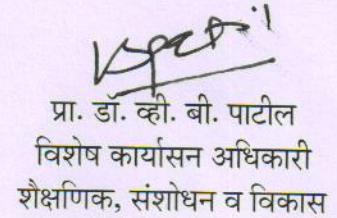 प्रा. डॉ. व्ही. बी. पाटील
विशेष कार्यासन अधिकारी
शैक्षणिक, संशोधन व विकास